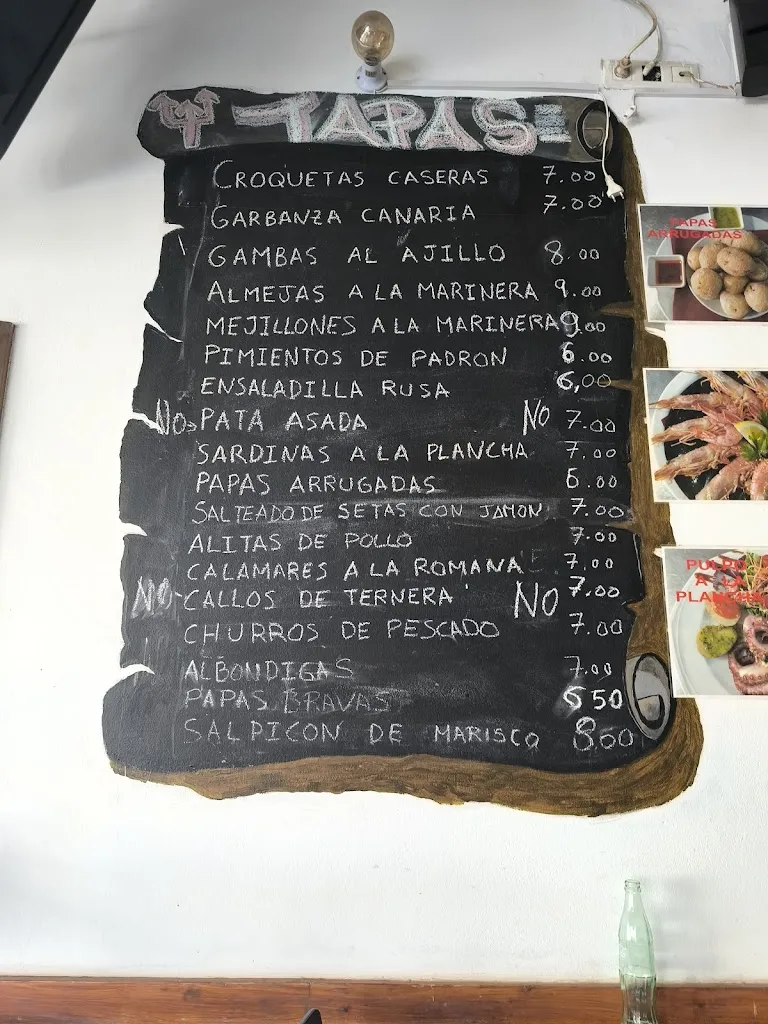 TAPAS
CROQUETAS CASERAS 7.00
GARBANZA CANARIA 7.00
GAMBAS AL AJILLO 8.00
ALMEJAS A LA MARINERA 9.00
MEJILLONES A LA MARINERA 9.00
PIMIENTOS DE PADRON 6.00
ENSALADILLA RUSA 6,00
NO PATA ASADA NO 7.00
SARDINAS A LA PLANCHA 7.00
PAPAS ARRUGADAS 6.00
SALTEADO DE SETAS CON JAMON 7.00
ALITAS DE POLLO 7.00
CALAMARES A LA ROMANA 7.00
NO CALLOS DE TERNERA NO 7.00
CHURROS DE PESCADO 7.00
ALBONDIGAS 7.00
PAPAS BRAVAS 6 50
SALPICON DE MARISCO 8.00
PAPAS
ARRUGADAS
PULPO
A LA
PLANCHA